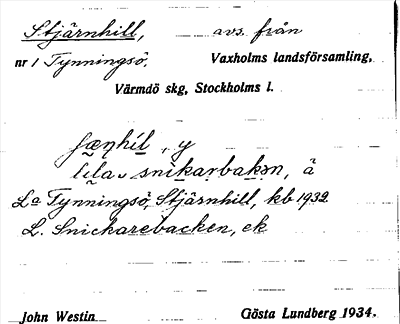 Stjärnhill, avs. från
nr 1 Tynningsö. Vaxholms landsförsamling,
Värmdö skg, Stockholms l.
y
lila snikarbakən, å
La Tynningsö, Stjärnhill, kb 1932
L. Snickarebacken, ek
John Westin Gösta Lundberg 1934.